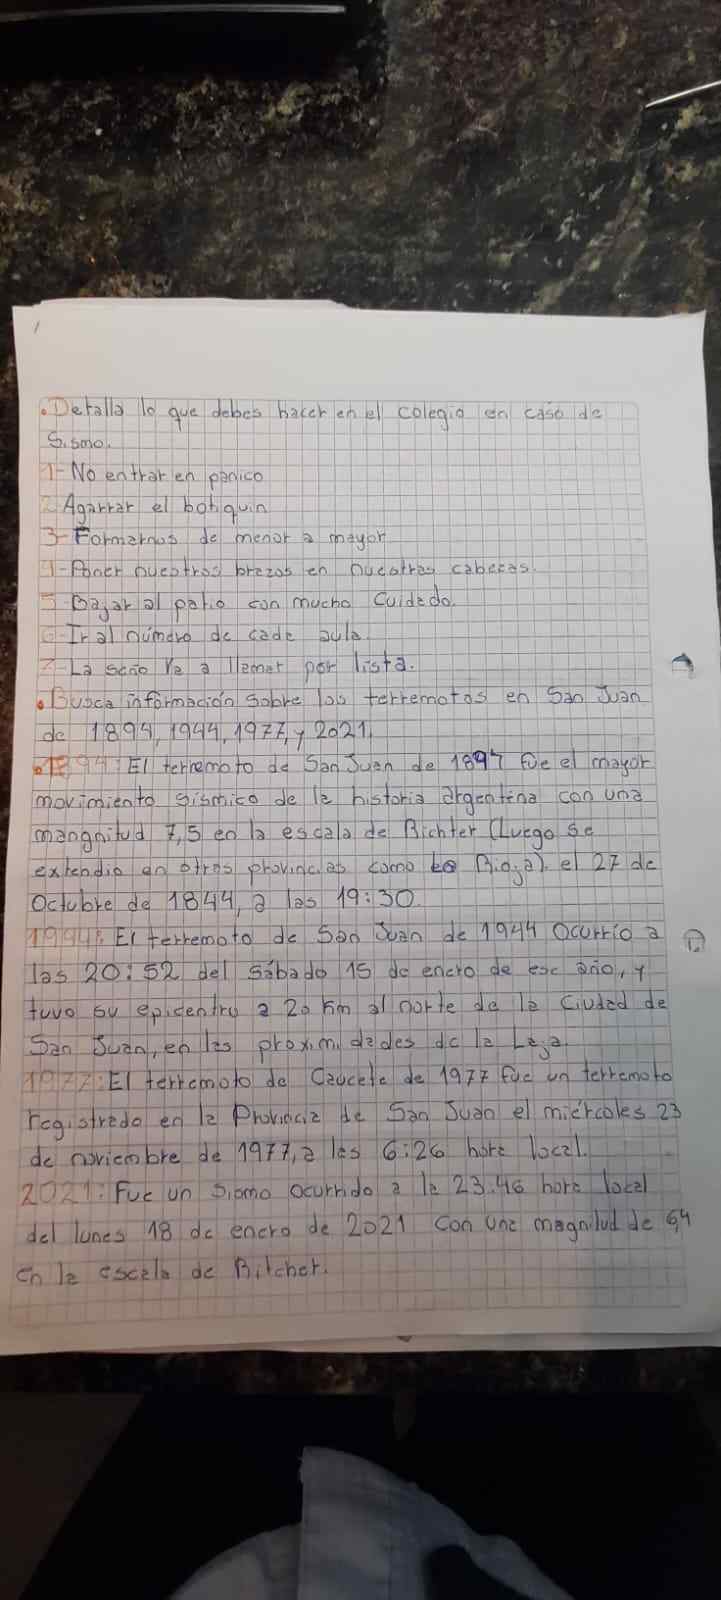 .Detalla lo que debes hacer en el colegio en caso de
Sismo.
1-No entrar en panico
2-Agarrar el botiquin
3-Formarnos de menor a mayor
4-Poner nuestros brazos en nuestras cabezas.
5-Bajar al patio con mucho Cuidado.
6-Ir al número de cada aula.
7-La seño va a llamar por lista.
.Busca información sobre los terremotos en San Juan
de 1894, 1944, 1977, y 2021.
.1894: El terremoto de San Juan de 1894 fue el mayor
movimiento sísmico de la historia argentina con una
mangnitud 7,5 en la escala de Richter (Luego se
extendio en otras provincias como la Rioja). el 27 de
Octubre de 1844, a las 19:30.
1944: El terremoto de San Juan de 1944 Ocurrio a
las 20:52 del sábado 15 de enero de ese año, y
tuvo su epicentro a 20 km al norte de la Ciudad de
San Juan, en las proximidades de la Laja.
1977: El terremoto de Caucete de 1977 fue un terremoto
registrado en la Provincia de San Juan el miércoles 23
de noviembre de 1977, a las 6:26 hora local.
2021: Fue un sismo ocurrido a la 23.46 hora local
del lunes 18 de enero de 2021 con una magnitud de 6,4
en la escala de Ritcher.